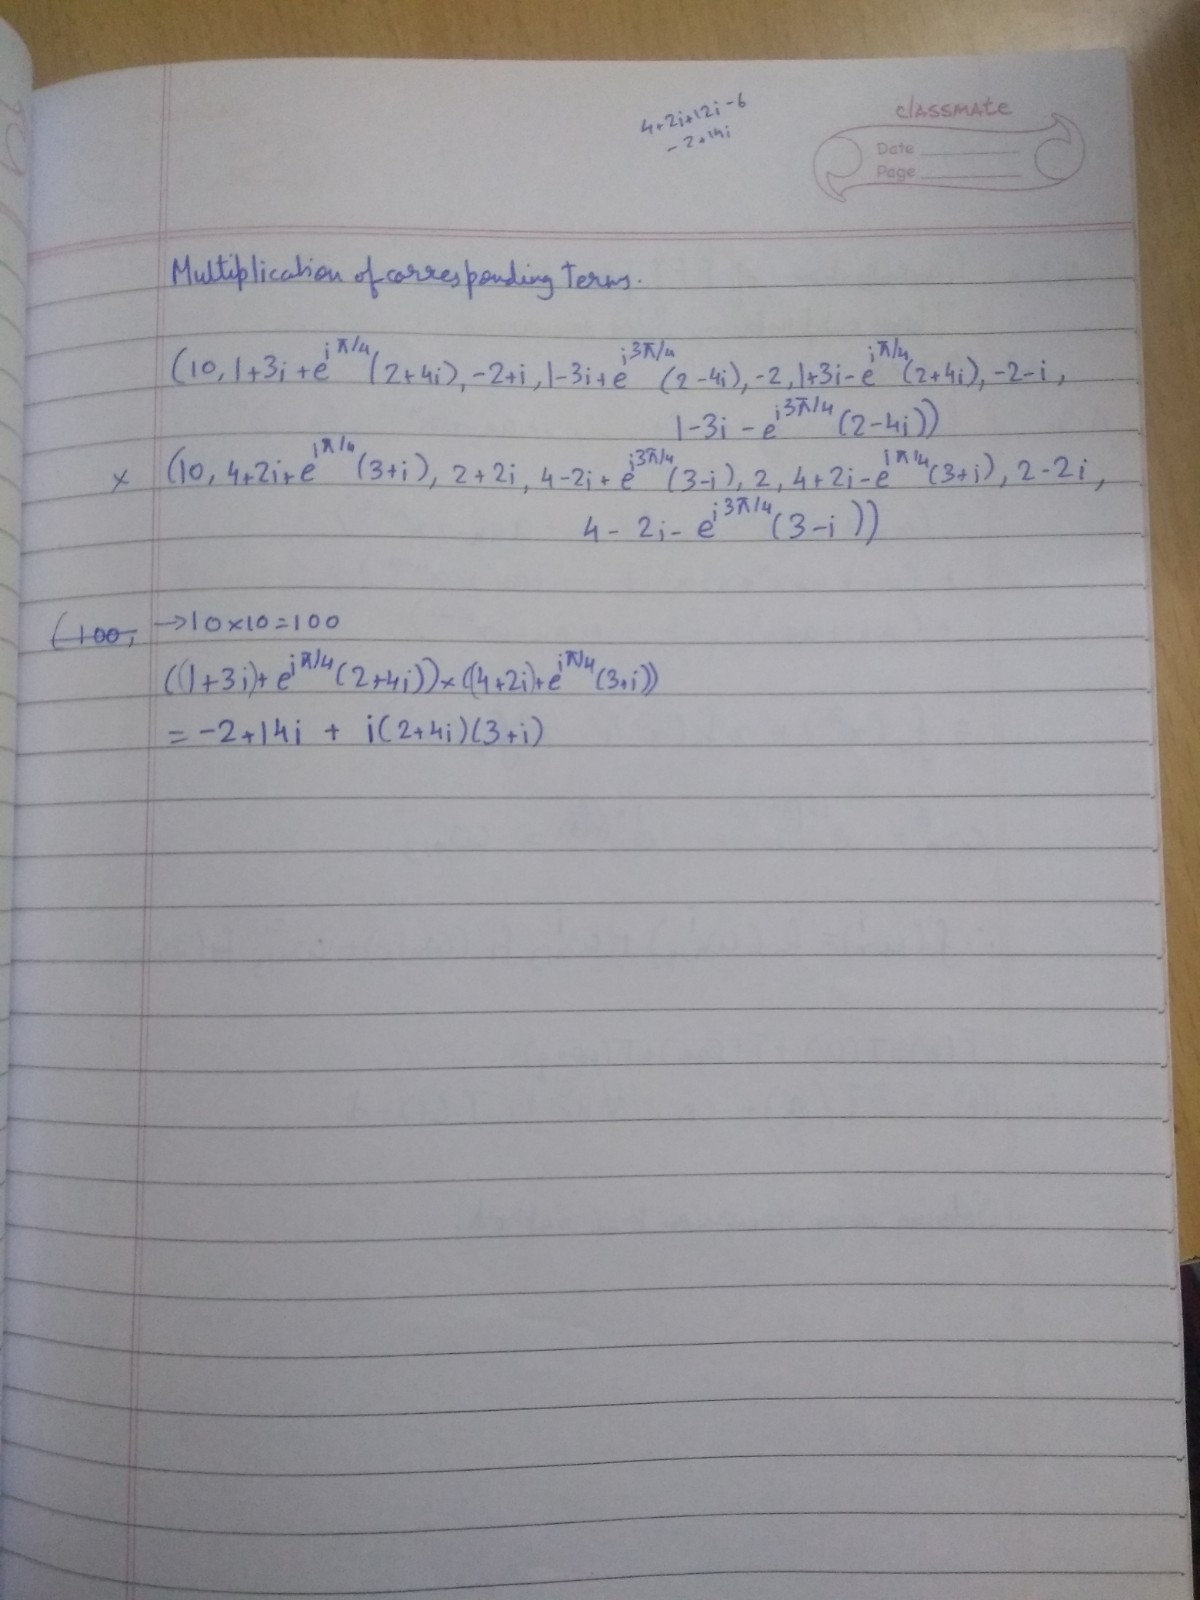 4+2i+12i-6
-2+14i
classmate
Date
Page
Multiplication of corresponding terms.
(10, 1+3i+e^{iπ/4}(2+4i), -2+i, 1-3i+e^{i3π/4}(2-4i), -2, 1+3i-e^{iπ/4}(2+4i), -2-i,
1-3i-e^{i3π/4}(2-4i))
× (10, 4+2i+e^{iπ/4}(3+i), 2+2i, 4-2i+e^{i3π/4}(3-i), 2, 4+2i-e^{iπ/4}(3+i), 2-2i,
4-2i-e^{i3π/4}(3-i))
(100, →10×10=100
((1+3i)+e^{iπ/4}(2+4i))×((4+2i)+e^{iπ/4}(3+i))
= -2+14i + i(2+4i)(3+i)